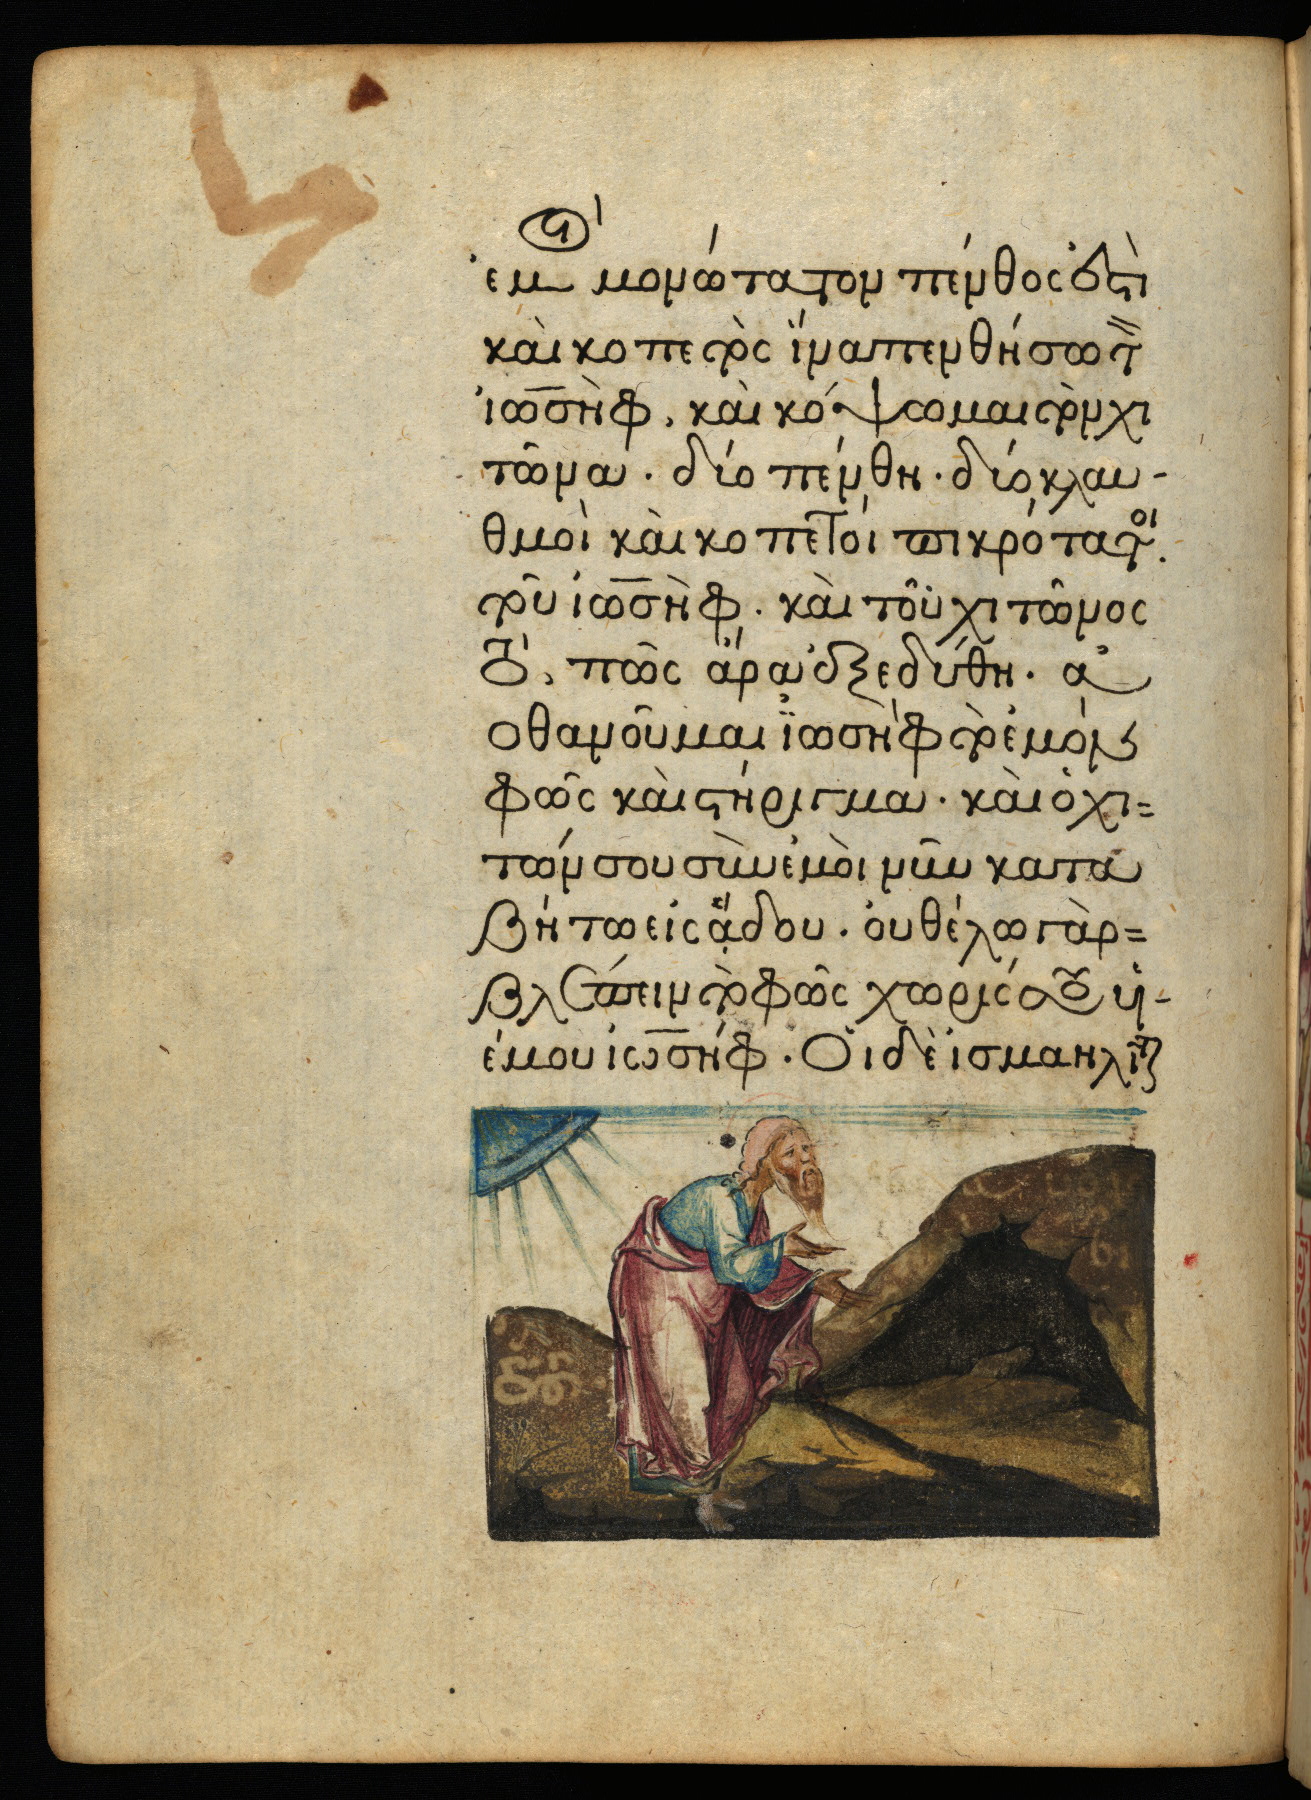 ἐμμονώτατον πένθος ἐστὶ
καὶ κοπετὸς ἵνα πενθήσω τὸν
ἰωσὴφ, καὶ κόψωμαι τὸν χι
τῶνα . δύο πένθη . δύο κλαυ-
θμοὶ καὶ κοπετοί πικρότατοι.
τοῦ ἰωσὴφ . καὶ τοῦ χιτῶνος
πῶς ἄρα ἐξεδύθη . ἀ
οθανοῦμαι ἰωσὴφ τὸ ἐμὸν
φῶς καὶ στήριγμα . καὶ ὁ χι=
τών σου σὺν ἐμοὶ νῦν κατα
βήτω εἰς ᾅδου . οὐ θέλω γὰρ=
βλέπειν τὸ φῶς χωρίς σου υἱ-
έ μου ἰωσήφ . Οἱ δὲ ἰσμαηλῖται